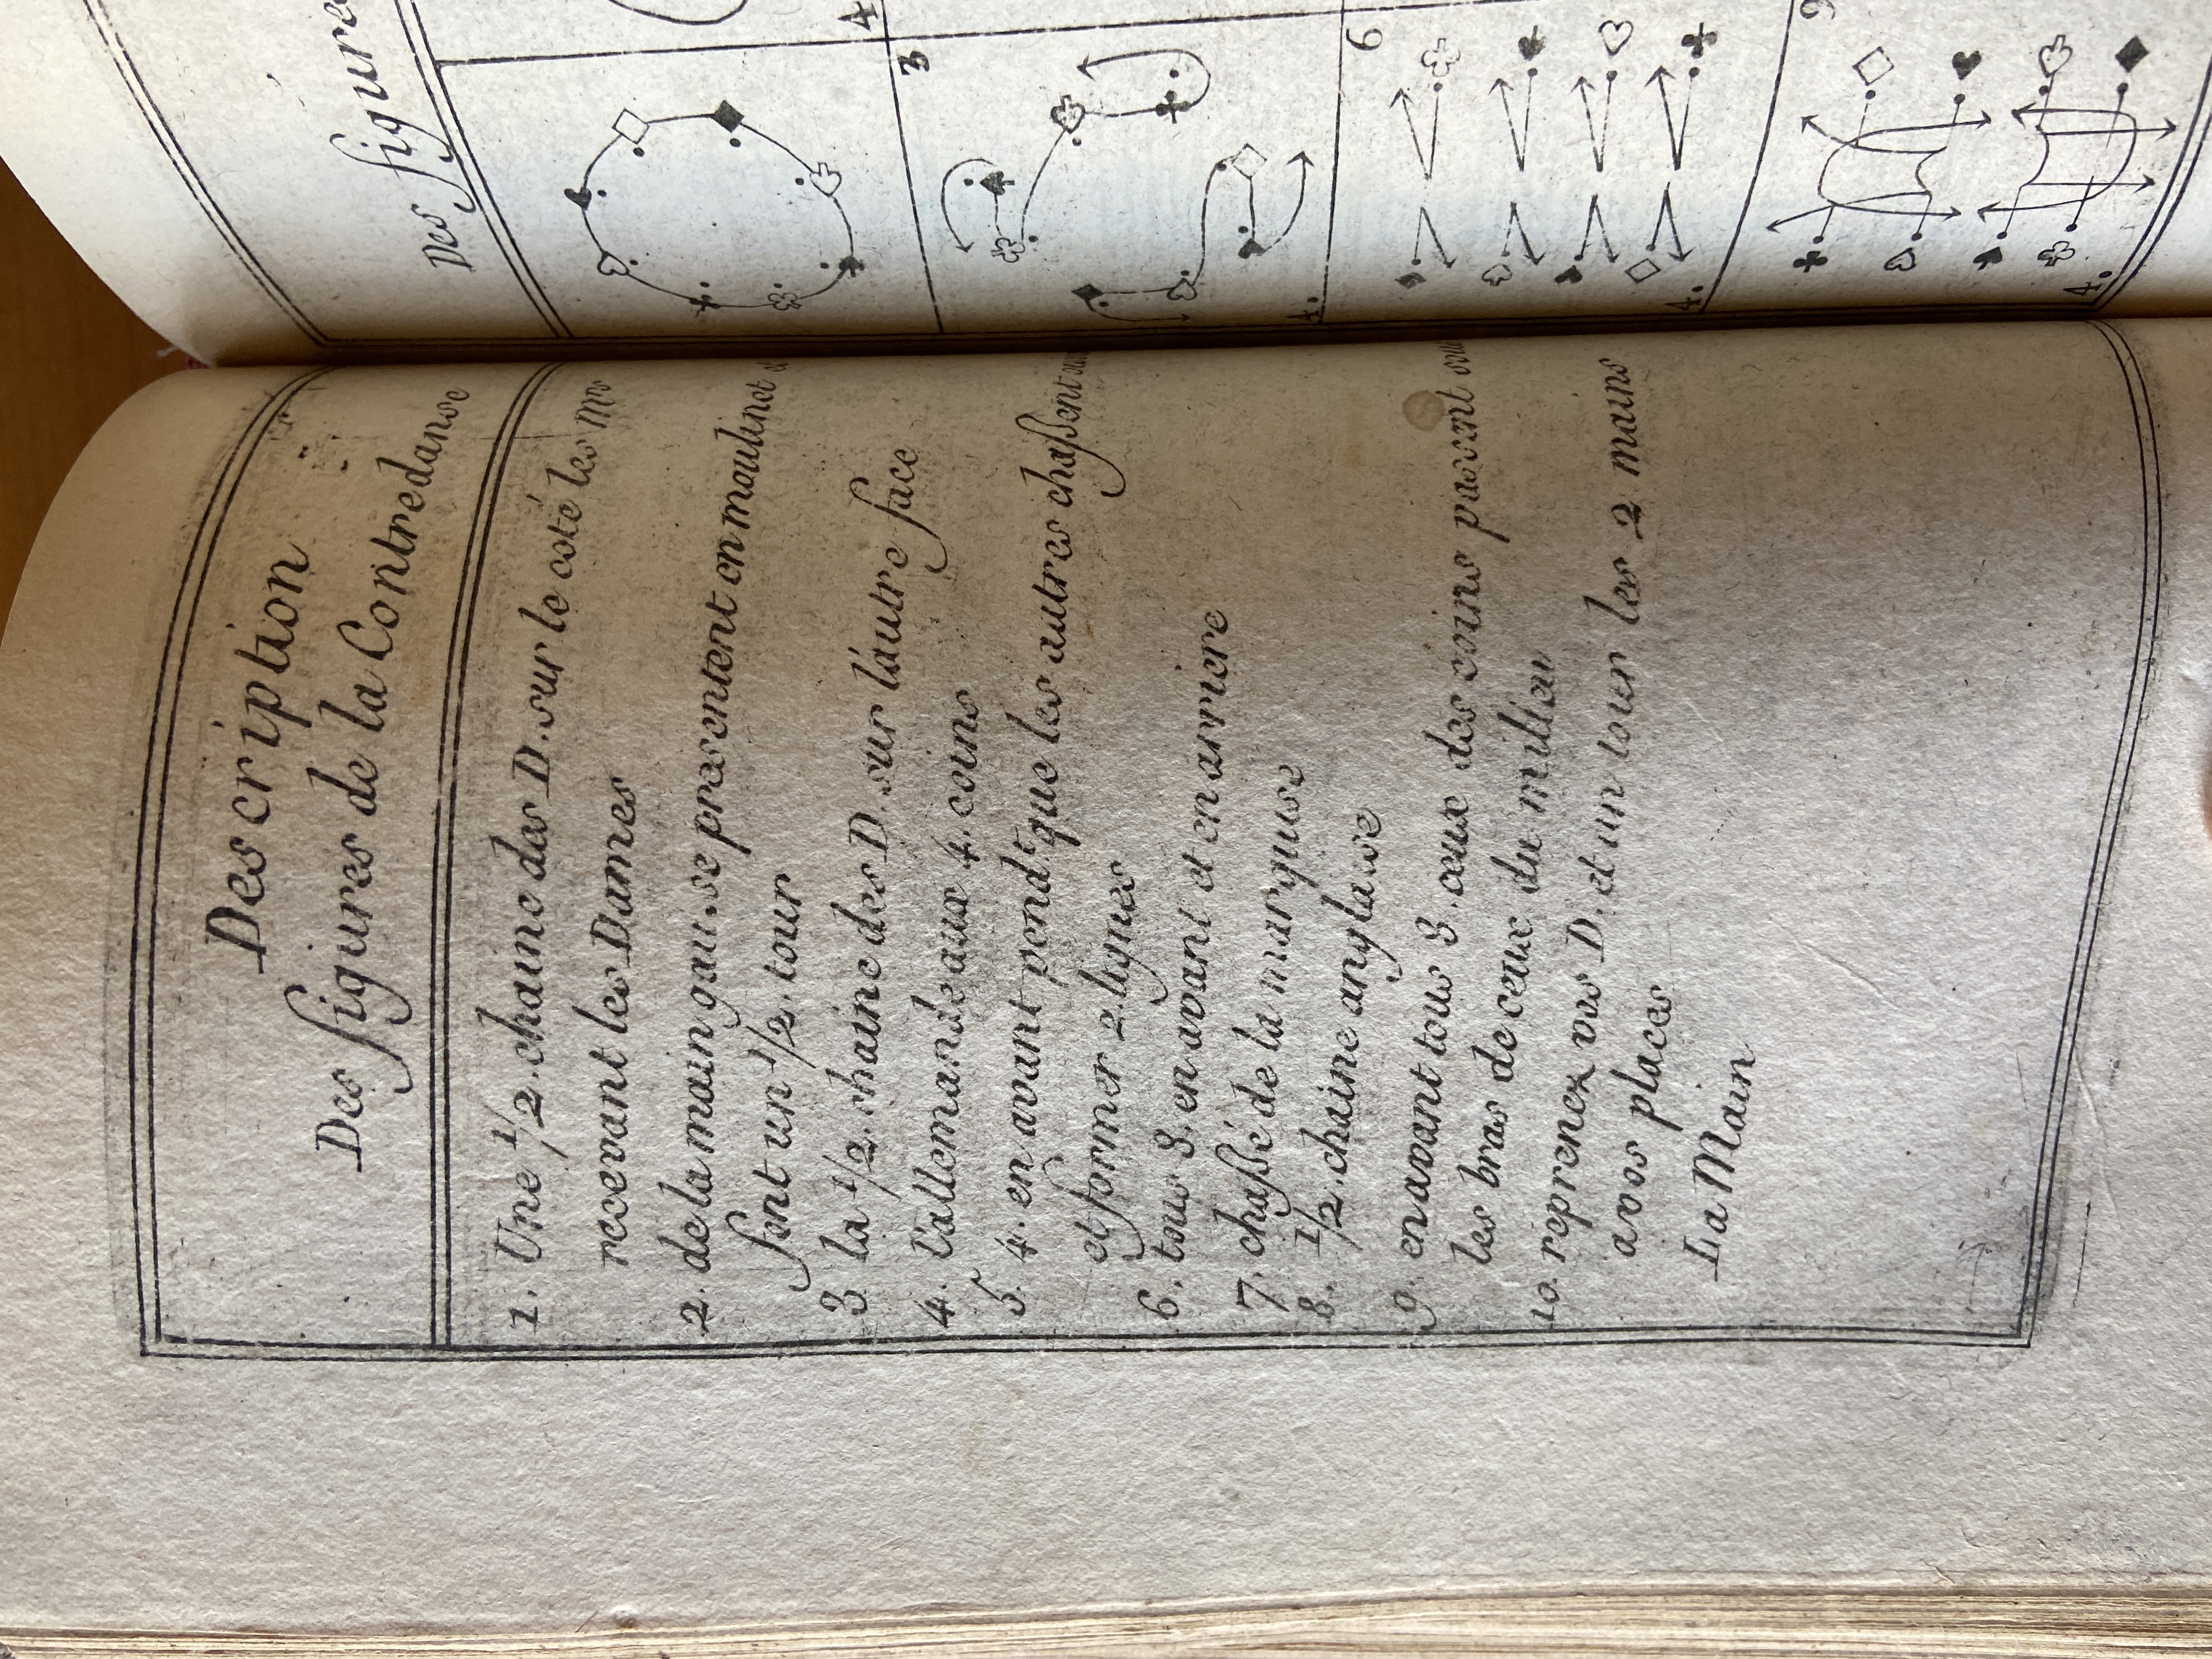 Description
Des figures de la Contredanse
1. Une 1/2. chaine des D. sur le coté les Mrs
recevant les Dames
2. de la main gau. se presentent en moulinet et
font un 1/2. tour
3 la 1/2. chaine des D. sur l'autre face
4. l'allemande aux 4. coins
5. 4. en avant pendt. que les autres chassent
et former 2. lignes
6. tous 8. en avant et en arriere
7. chassé de la marquise
8. 1/2. chaine anglaise
9. en avant tous 8. ceux des coins passent
les bras de ceux du milieu
10. reprenez vos D. et un tour les 2 mains
a vos places
La Main
Des figure
4
3
4.
6
4.
9
4.